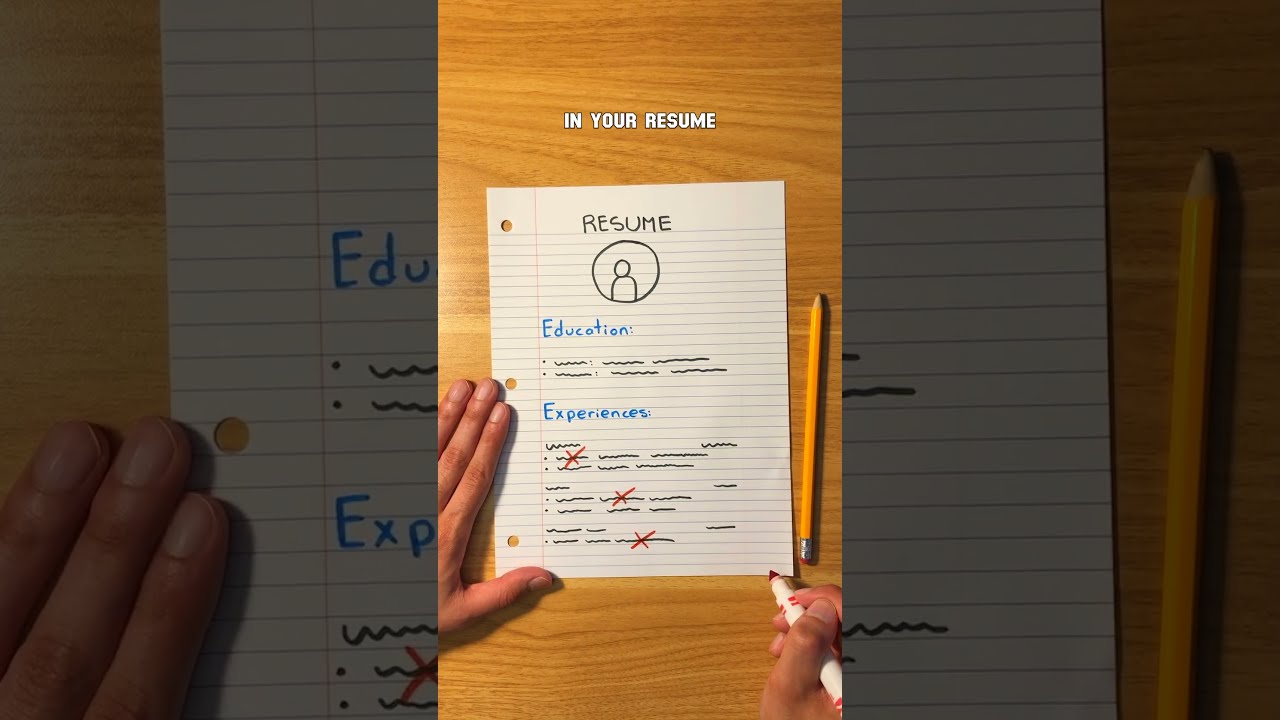 IN YOUR RESUME
RESUME
Education:
Experiences: